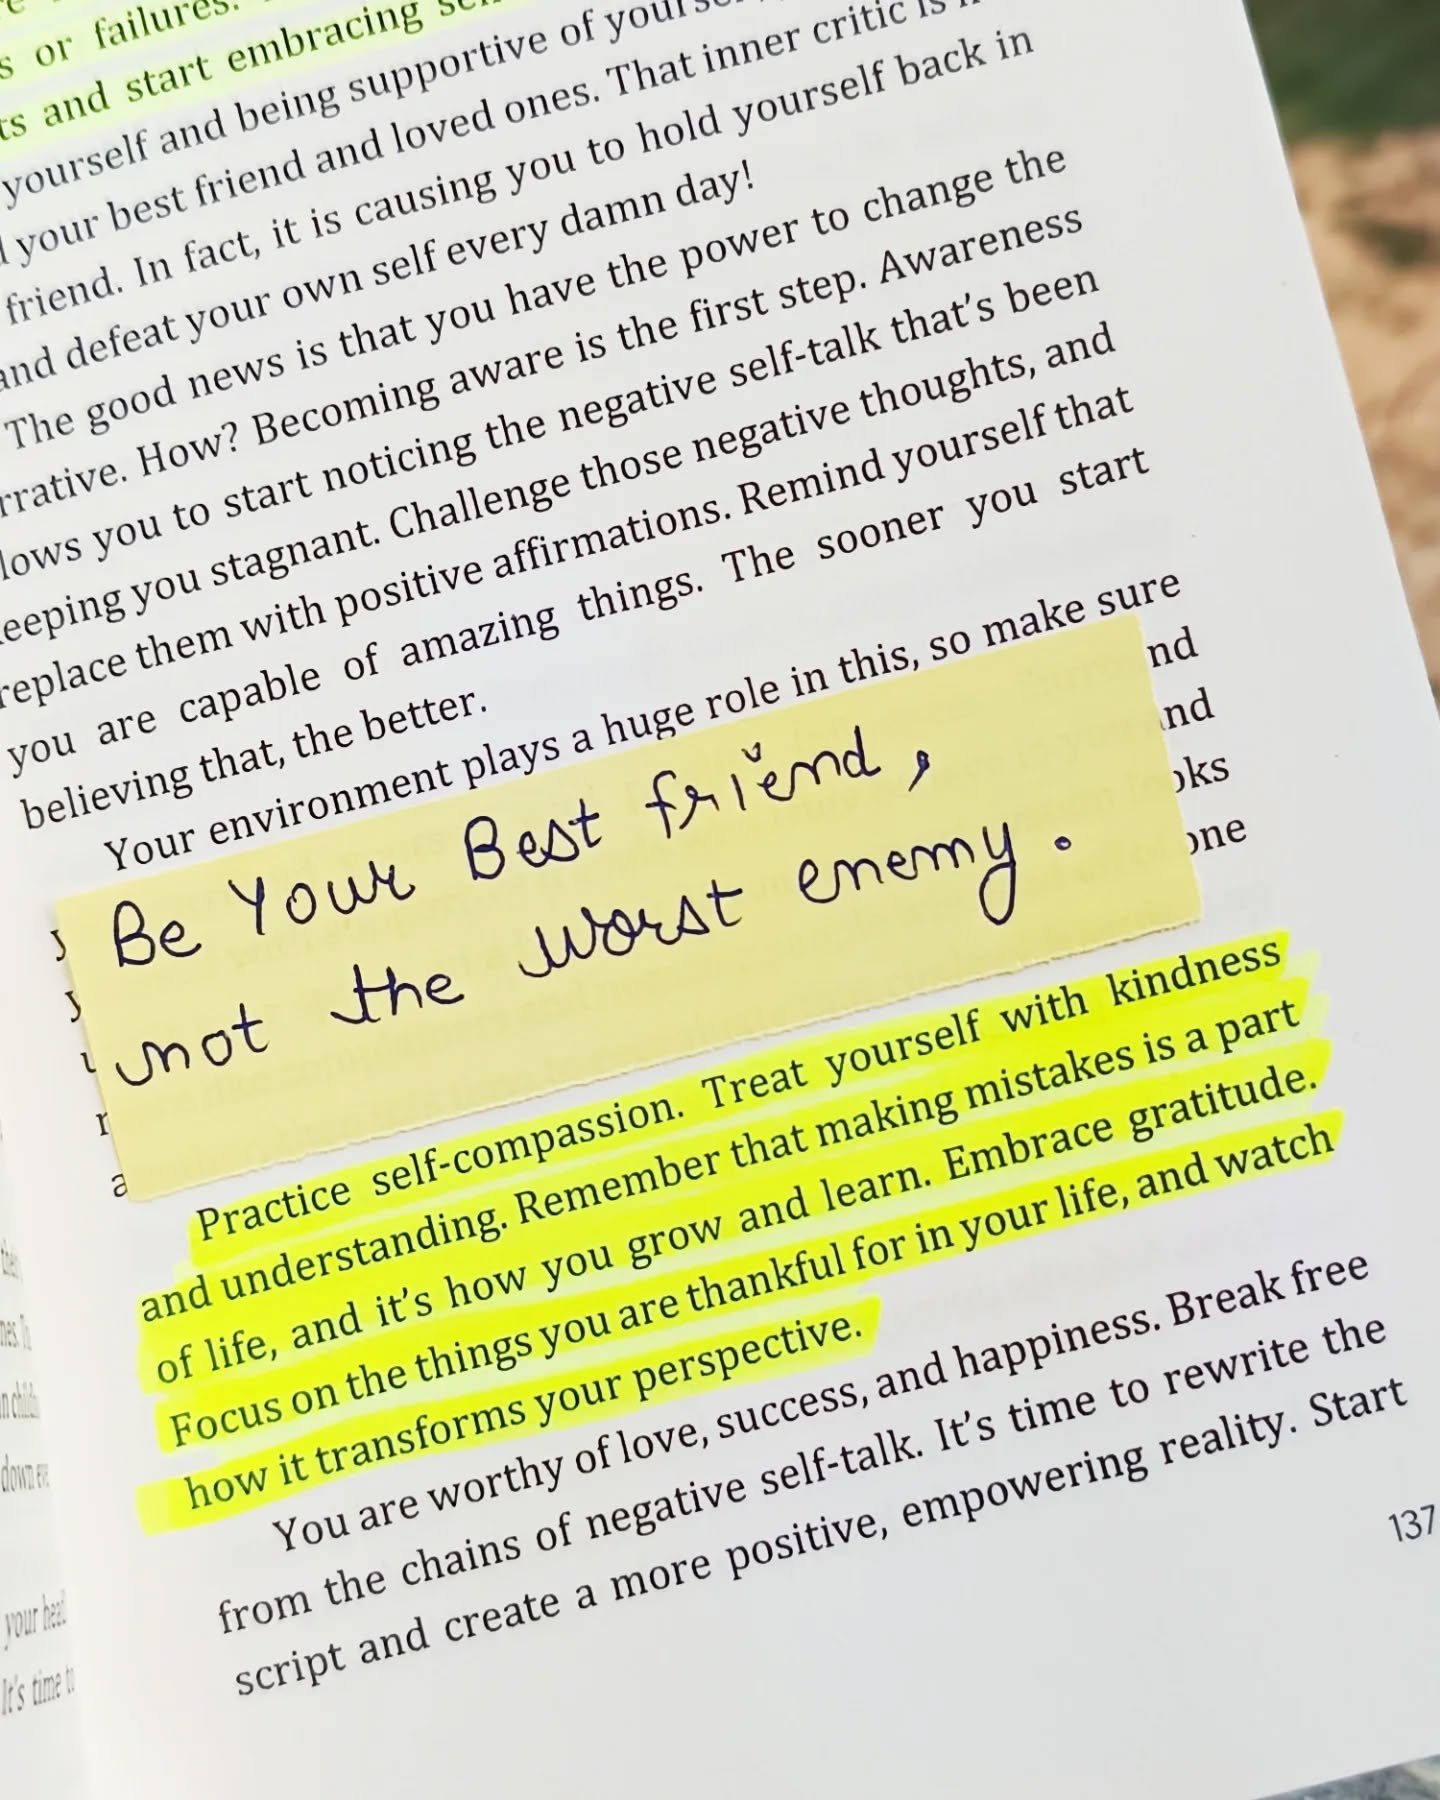 s or failures.
ts and start embracing
yourself and being supportive of
your best friend and loved ones. That inner critic is
friend. In fact, it is causing you to hold yourself back in
and defeat your own self every damn day!
The good news is that you have the power to change the
rrative. How? Becoming aware is the first step. Awareness
lows you to start noticing the negative self-talk that's been
eeping you stagnant. Challenge those negative thoughts, and
replace them with positive affirmations. Remind yourself that
you are capable of amazing things. The sooner you start
believing that, the better.
Your environment plays a huge role in this, so make sure
nd
nd
oks
one
Be Your Best friend,
not the worst enemy.
Practice self-compassion. Treat yourself with kindness
and understanding. Remember that making mistakes is a part
of life, and it's how you grow and learn. Embrace gratitude.
Focus on the things you are thankful for in your life, and watch
how it transforms your perspective.
You are worthy of love, success, and happiness. Break free
from the chains of negative self-talk. It's time to rewrite the
script and create a more positive, empowering reality. Start
137
down
your head
It's time to